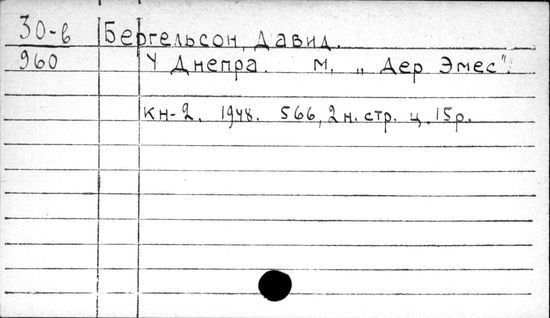 30-в Бергельсон, Давид.
960 У Днепра. М. „Дер Эмес".
кн-2. 1948. 566, 2 н. стр. ц. 15 р.